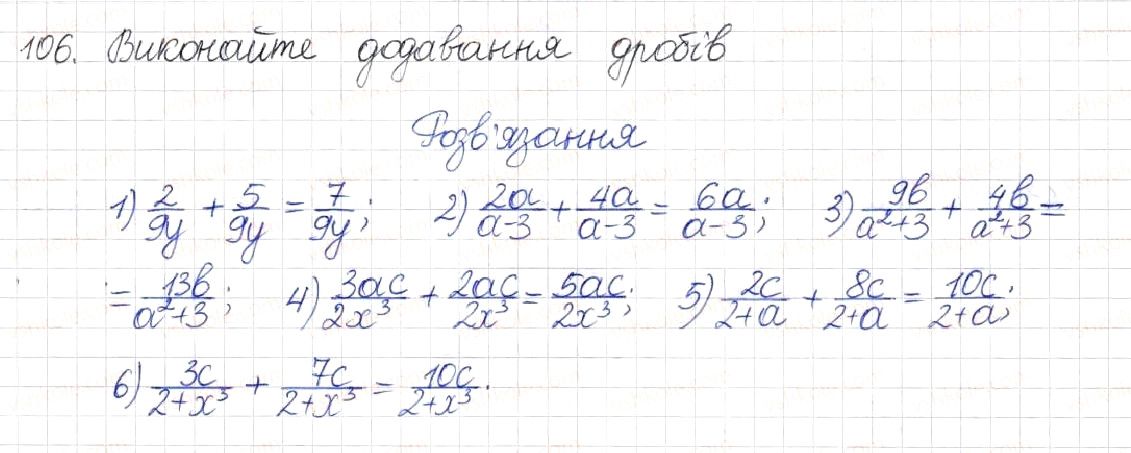 106. Виконайте додавання дробів
Розв'язання
1) 2/9y + 5/9y = 7/9y; 2) 2a/a-3 + 4a/a-3 = 6a/a-3; 3) 9b/a²+3 + 4b/a²+3 =
= 13b/a²+3; 4) 3ac/2x³ + 2ac/2x³ = 5ac/2x³; 5) 2c/2+a + 8c/2+a = 10c/2+a;
6) 3c/2+x³ + 7c/2+x³ = 10c/2+x³.